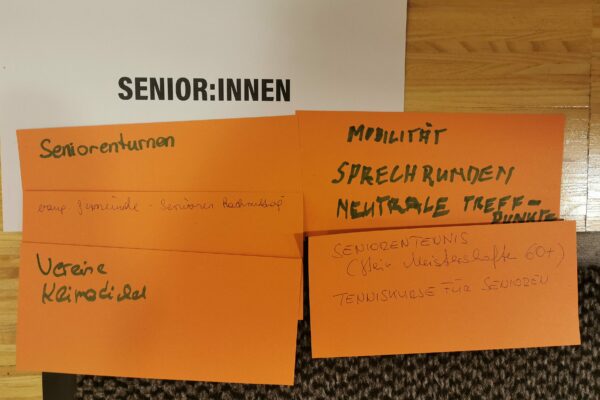 SENIOR:INNEN
Seniorenturnen
evang Gemeinde - Senioren Nachmittag
Vereine
MOBILITÄT
SPRECHRUNDEN
NEUTRALE TREFF-
PUNKTE
SENIORENTENNIS
Meisterschafte 60+)
TENNISKURSE FÜR SENIOREN